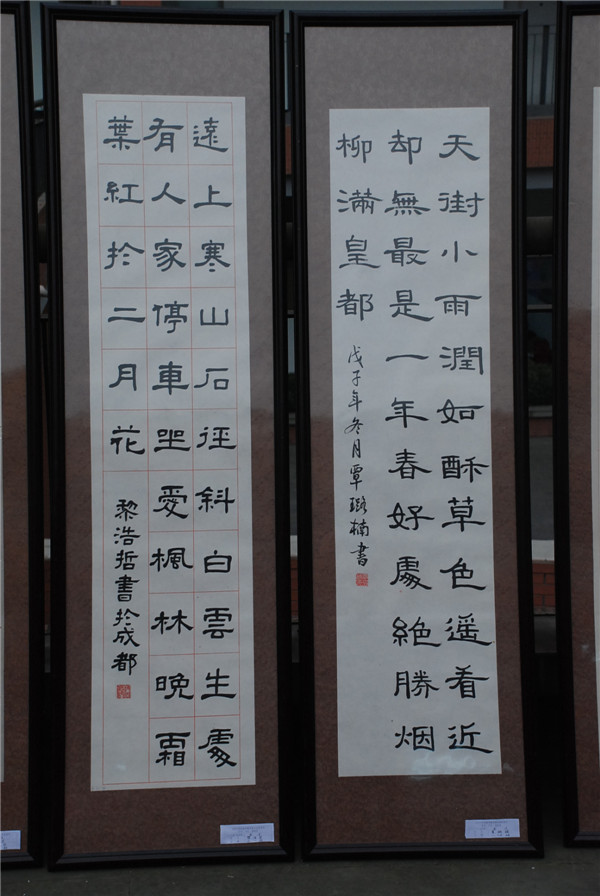 遠上寒山石径斜白雲生處
有人家停車坐愛楓林晚霜
葉紅於二月花
黎浩哲書於成都
天街小雨潤如酥草色遥看近
却無最是一年春好處絶勝烟
柳滿皇都
戊子年冬月覃璐楠書